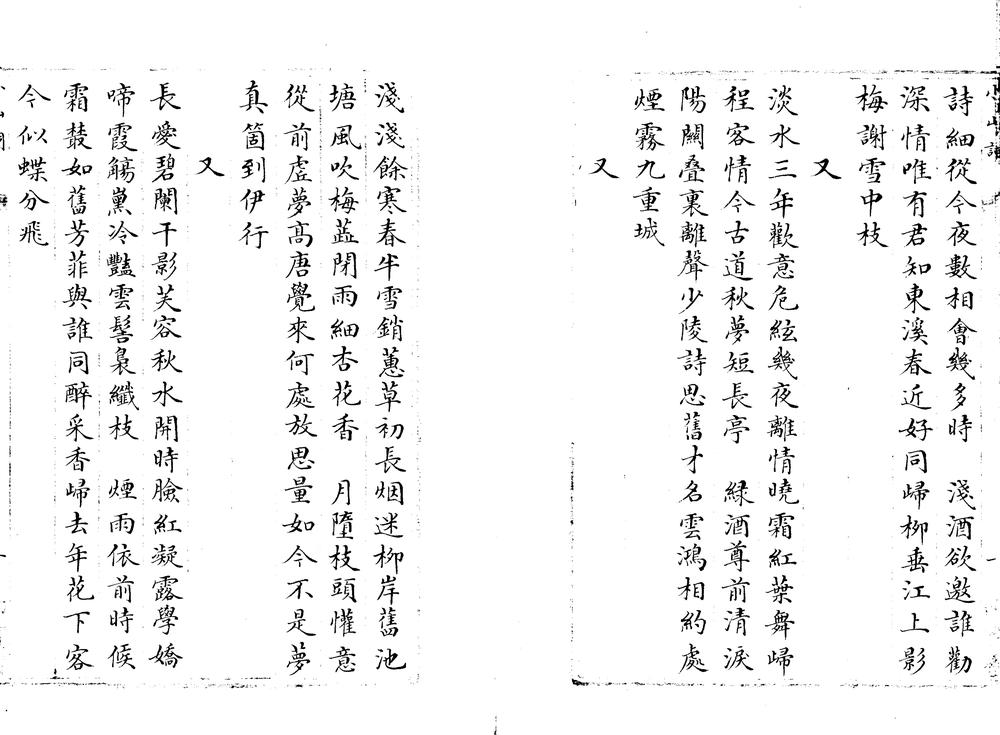 詩細從今夜數相會幾多時　淺酒欲邀誰勸
深情唯有君知東溪春近好同歸柳垂江上影
梅謝雪中枝
又
淡水三年歡意危絃幾夜離情曉霜紅葉舞歸
程客情今古道秋夢短長亭　緑酒尊前清淚
陽關叠裏離聲少陵詩思舊才名雲鴻相約處
煙霧九重城
又
淺淺餘寒春半雪銷蕙草初長烟迷柳岸舊池
塘風吹梅蕋閉雨細杏花香　月墮枝頭懽意
從前虛夢高唐覺來何處放思量如今不是夢
真箇到伊行
又
長愛碧闌干影芙容秋水開時臉紅凝露學嬌
啼霞觴熏冷豔雲髻裊纖枝　煙雨依前時候
霜藂如舊芳菲與誰同醉采香歸去年花下客
今似蝶分飛